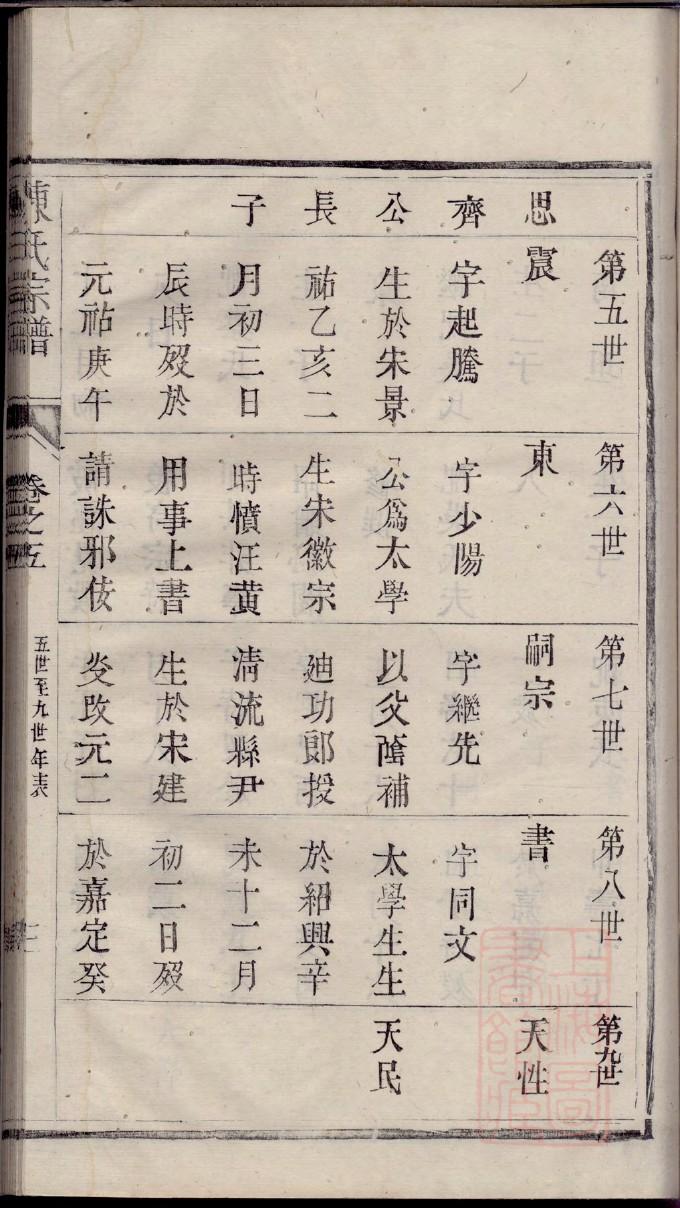 第五世
思震
齊 字起騰
公 生於宋景
長 祐乙亥二
子 月初三日
辰時殁於
元祐庚午
第六世
東
字少陽
公爲太學
生宋徽宗
時憤汪黄
用事上書
請誅邪佞
第七世
嗣宗
字繼先
以父蔭補
廸功郎授
淸流縣尹
生於宋建
炎改元二
第八世
書
字同文
太學生生
於紹興辛
未十二月
初二日殁
於嘉定癸
第九世
天性
天民
陳氏宗譜
卷之五
五世至九世年表